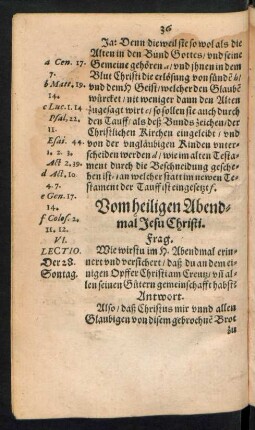 36
Ja: Denn dieweil sie so wol als die
Alten in den Bund Gottes/ vnd seine
Gemeine gehören a/ vnd jhnen in dem
Blut Christi die erlösung von sünde b/
vnd dem H. Geist/ welcher den Glaubē
würcket/ nit weniger dann den Alten
zugesagt wirt c/ so sollen sie auch durch
den Tauff/ als deß Bunds zeichen/ der
Christlichen Kirchen eingeleibt/ vnd
von der vngläubigen Kinden unter-
scheiden werden d/ wie im alten Testa-
ment durch die Beschneidung gesche-
hen ist e/ an welcher statt im newen Te-
stament der Tauff ist eingesetzt f.
a Cen. 17.
7.
b Matt. 19.
14.
c Luc. 1. 14
Psal. 22.
11.
Esai. 44.
1. 2. 3.
Act 2. 39.
d Act. 10
4. 7.
e Gen. 17.
14.
f Colos. 2.
11. 12.
Vom heiligen Abend-
mal Jesu Christi.
VI.
LECTIO.
Der 28.
Sontag.
Frag.
Wie wirstu im H. Abendmal erin-
nert vnd versichert/ daß du an dem ei-
nigen Opffer Christi am Creutz/ vñ al-
len seinen Gütern gemeinschafft habst?
Antwort.
Also/ daß Christus mir vnnd allen
Glaubigen von disem gebrochnē Brot
zu